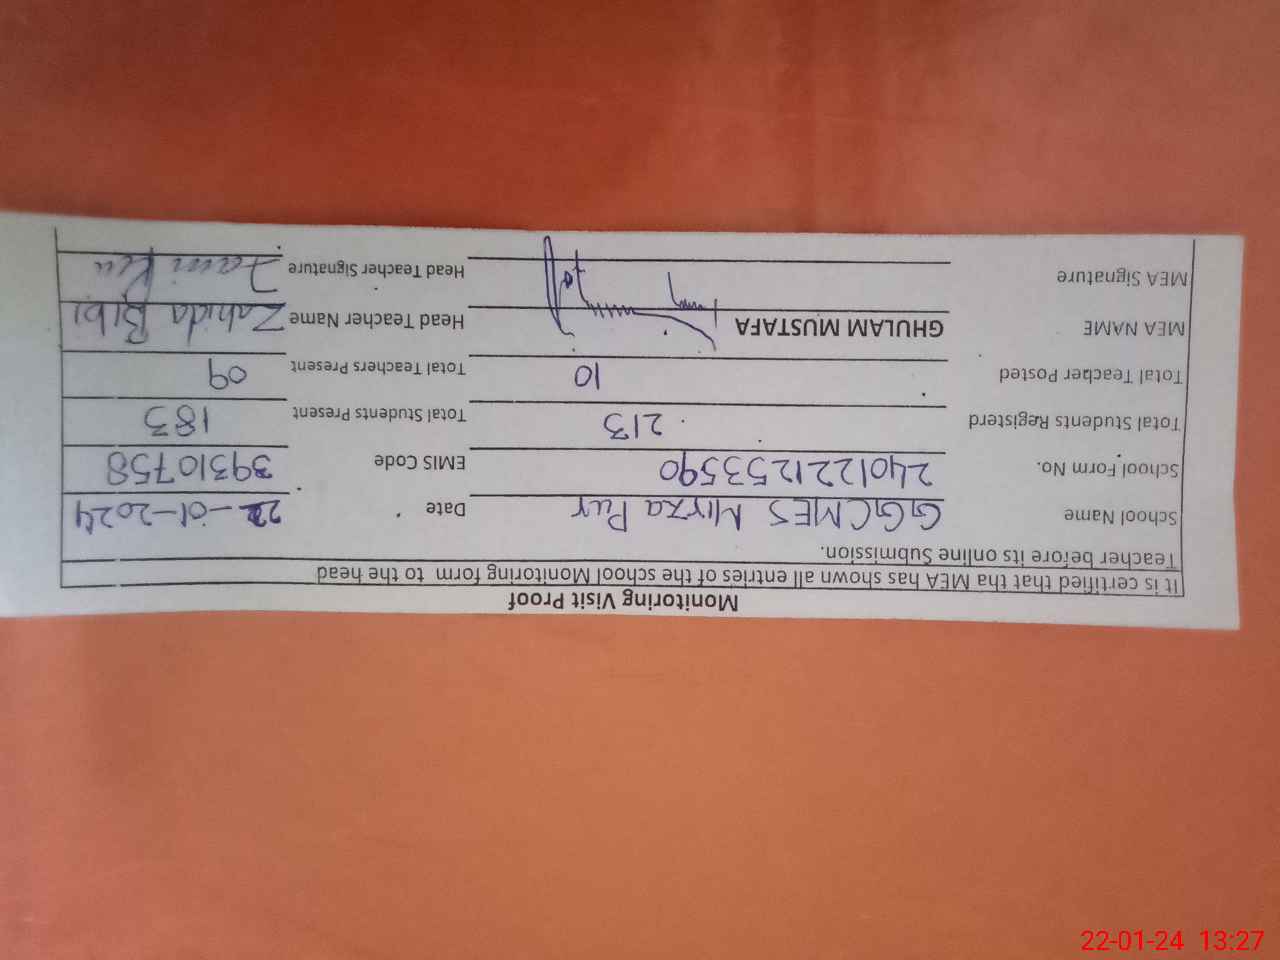 Monitoring Visit Proof
It is certified that tha MEA has shown all entries of the school Monitoring form to the head
Teacher before its online Submission.
School Name GGCMES Mirza Pur Date 22-01-2024
School Form No. 2401221253590 EMIS Code 39310758
Total Students Registerd 213 Total Students Present 183
Total Teacher Posted 10 Total Teachers Present 09
MEA NAME GHULAM MUSTAFA Head Teacher Name Zahida Bibi
MEA Signature Head Teacher Signature
22-01-24 13:27